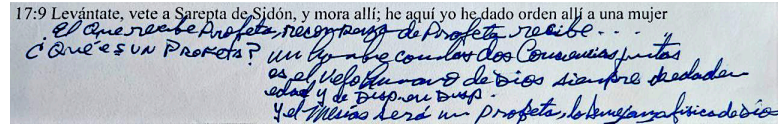 17:9 Levántate, vete a Sarepta de Sidón, y mora allí; he aquí yo he dado orden allí a una mujer
El que recibe Profeta, recompensa de Profeta recibe...
¿Qué es un Profeta? un hombre con las dos Consciencias juntas
es el velo humano de Dios siempre de edad en
edad y de Disp en Disp.
y el Mesías será un Profeta, la semejanza física de Dio